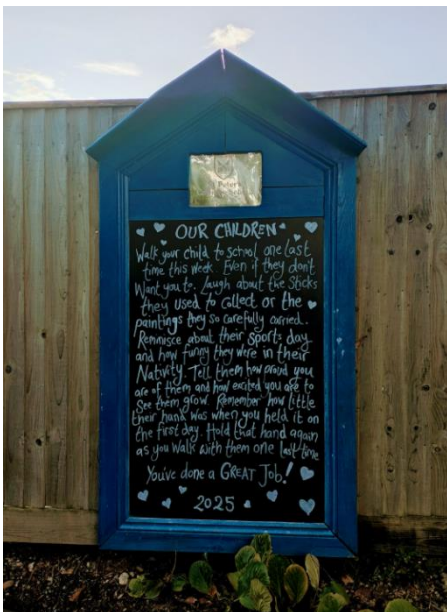 Peter's
OUR CHILDREN
Walk your child to school one last
time this week. Even if they don't
Want you to. Laugh about the sticks
they used to collect or the
paintings they so carefully carried.
Reminisce about their sports day
and how funny they were in their
Nativity. Tell them how proud you
are of them and how excited you are to
see them grow. Remember how little
their hand was when you held it on
the first day. Hold that hand again
as you walk with them one last time
You've done a GREAT Job!
2025